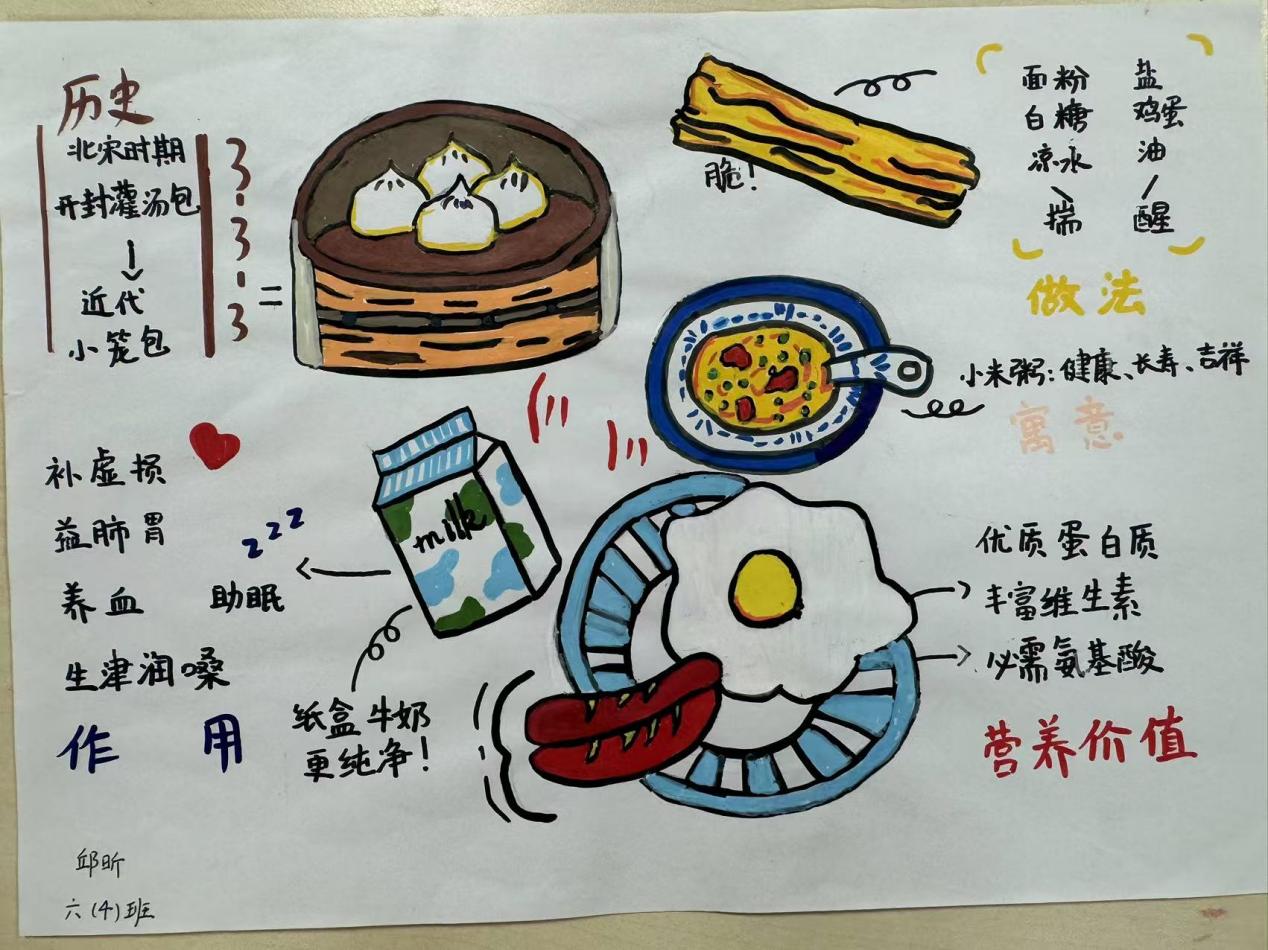 历史
北宋时期
开封灌汤包
近代
小笼包
3.3.3
=
脆！
面粉 盐
白糖 鸡蛋
凉水 油
揣 醒
做法
小米粥：健康、长寿、吉祥
寓意
补虚损
益肺胃
养血
生津润嗓
作用
zzz
助眠
milk
纸盒牛奶
更纯净！
优质蛋白质
丰富维生素
必需氨基酸
营养价值
邱昕
六（4）班